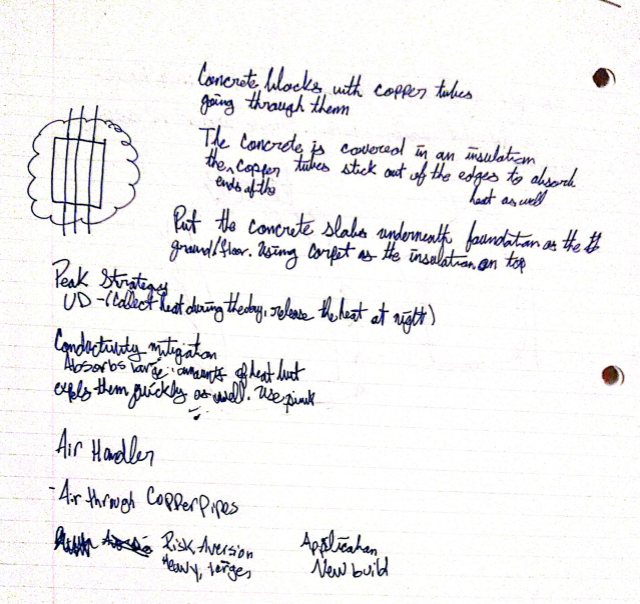 Concrete blocks with copper tubes
going through them
The concrete is covered in an insulation
the ends of the copper tubes stick out of the edges to absorb
heat as well
Put the concrete slabs underneath foundation as the
ground/floor. Using carpet as the insulation on top
Peak Strategy
UD - (Collect heat during the day, release the heat at night)
Conductivity mitigation
Absorbs large amounts of heat but
expels them quickly as well. Use pink
Air Handler
- Air through Copper Pipes
Risk Aversion
Heavy, larger
Application
New build